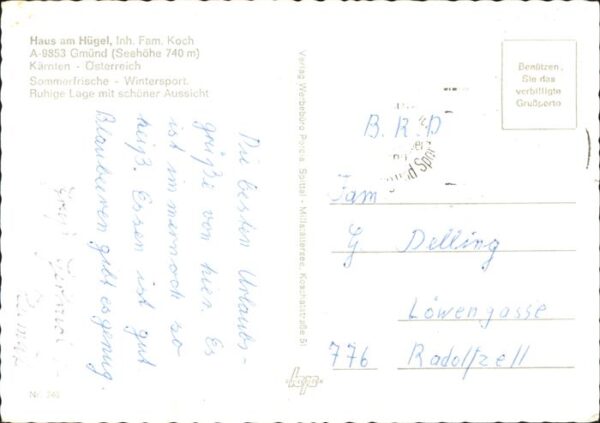 Haus am Hügel, Inh. Fam. Koch
A-9853 Gmünd (Seehöhe 740 m)
Kärnten - Österreich
Sommerfrische - Wintersport.
Ruhige Lage mit schöner Aussicht
Die besten Urlaubs-
grüße von hier. Es
ist immernoch so
heiß. Essen ist gut
Blaubeeren gibt es genug.
Nr. 246
Verlag Werbebüro Porcia Spittal - Millstättersee, Koschatstraße 51
Benützen
Sie das
verbilligte
Grußporto
B. R. D
Fam
G Delling
Löwengasse
776 Radolfzell